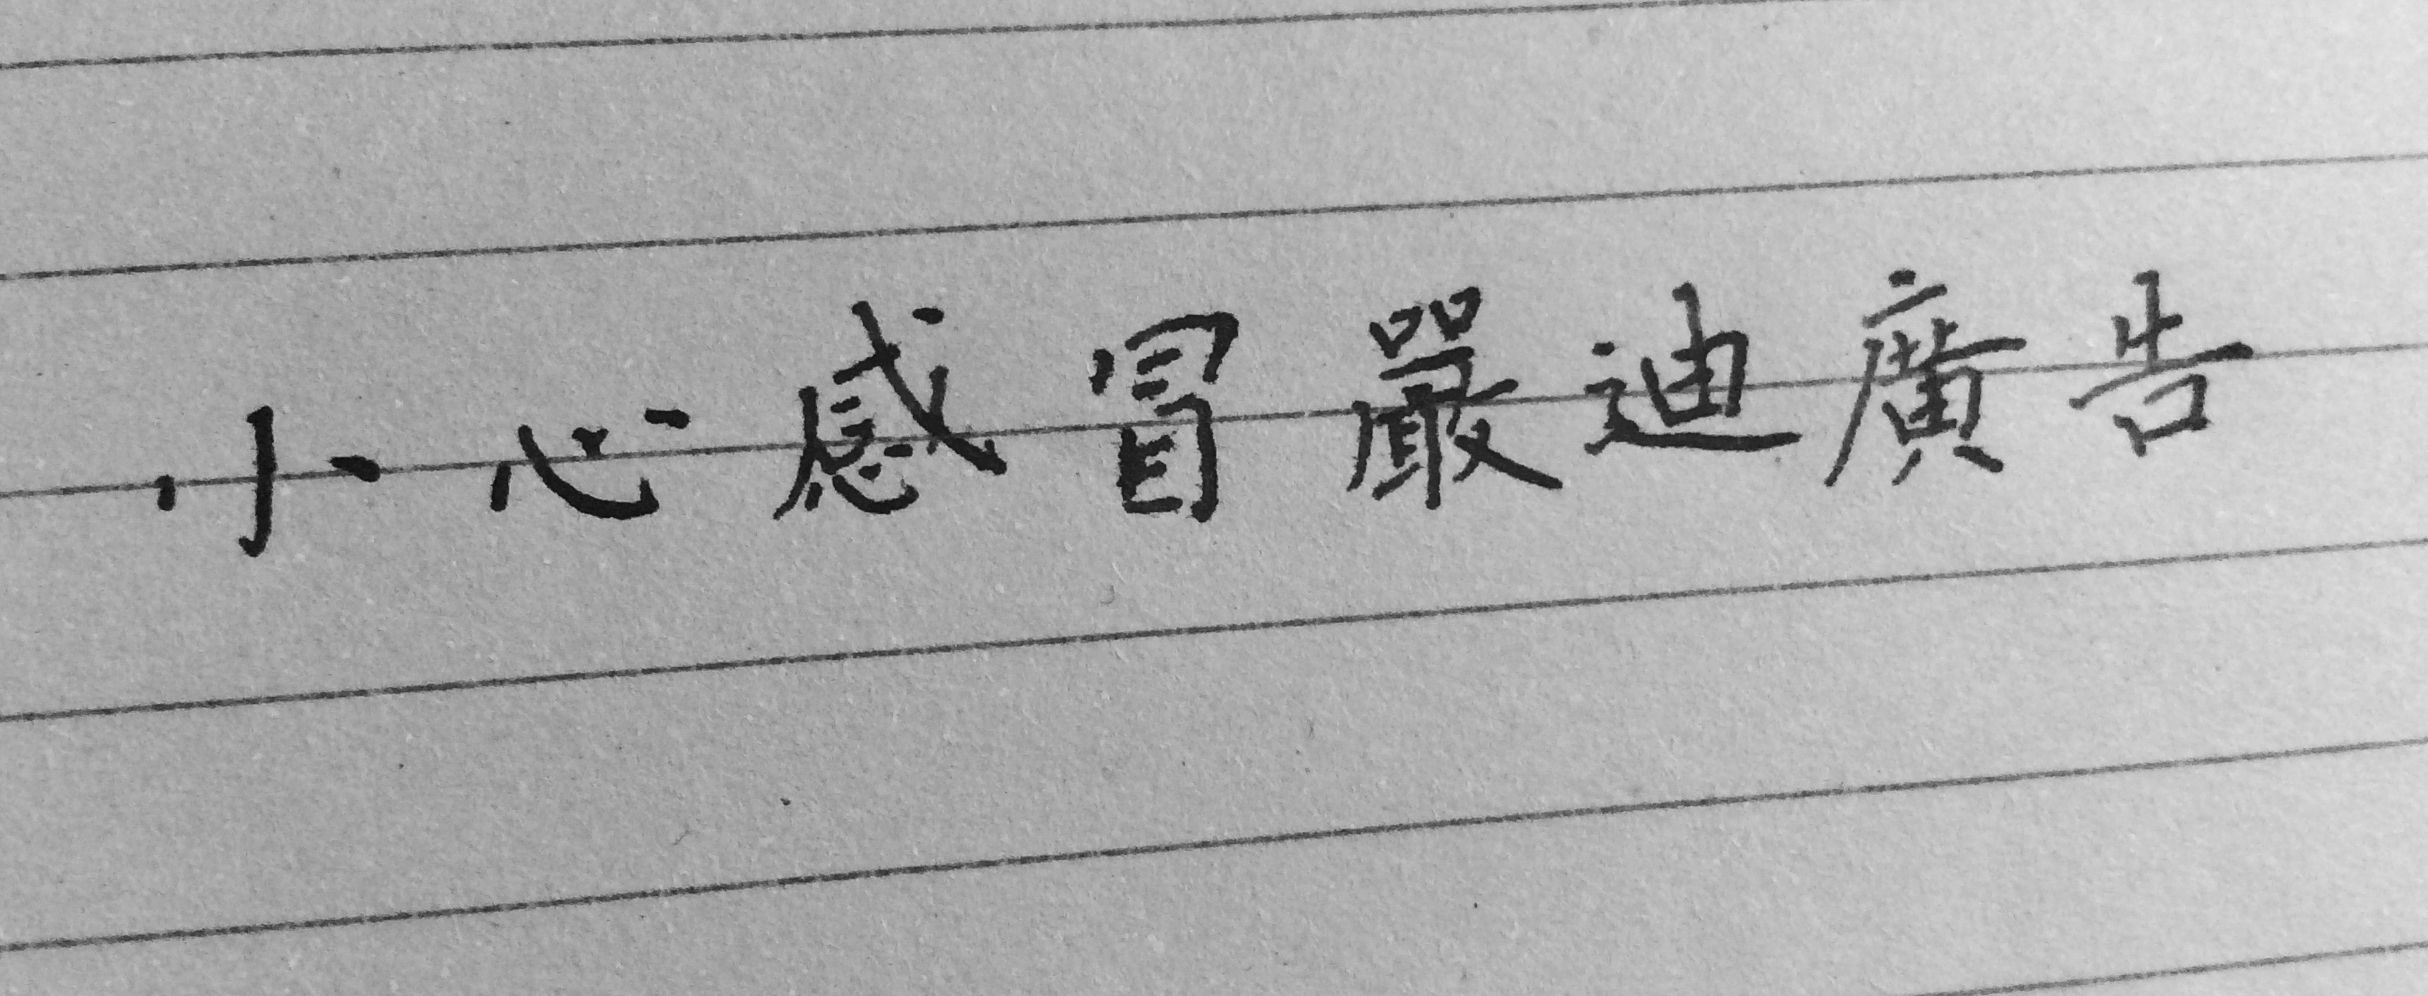 小心感冒嚴迪廣告